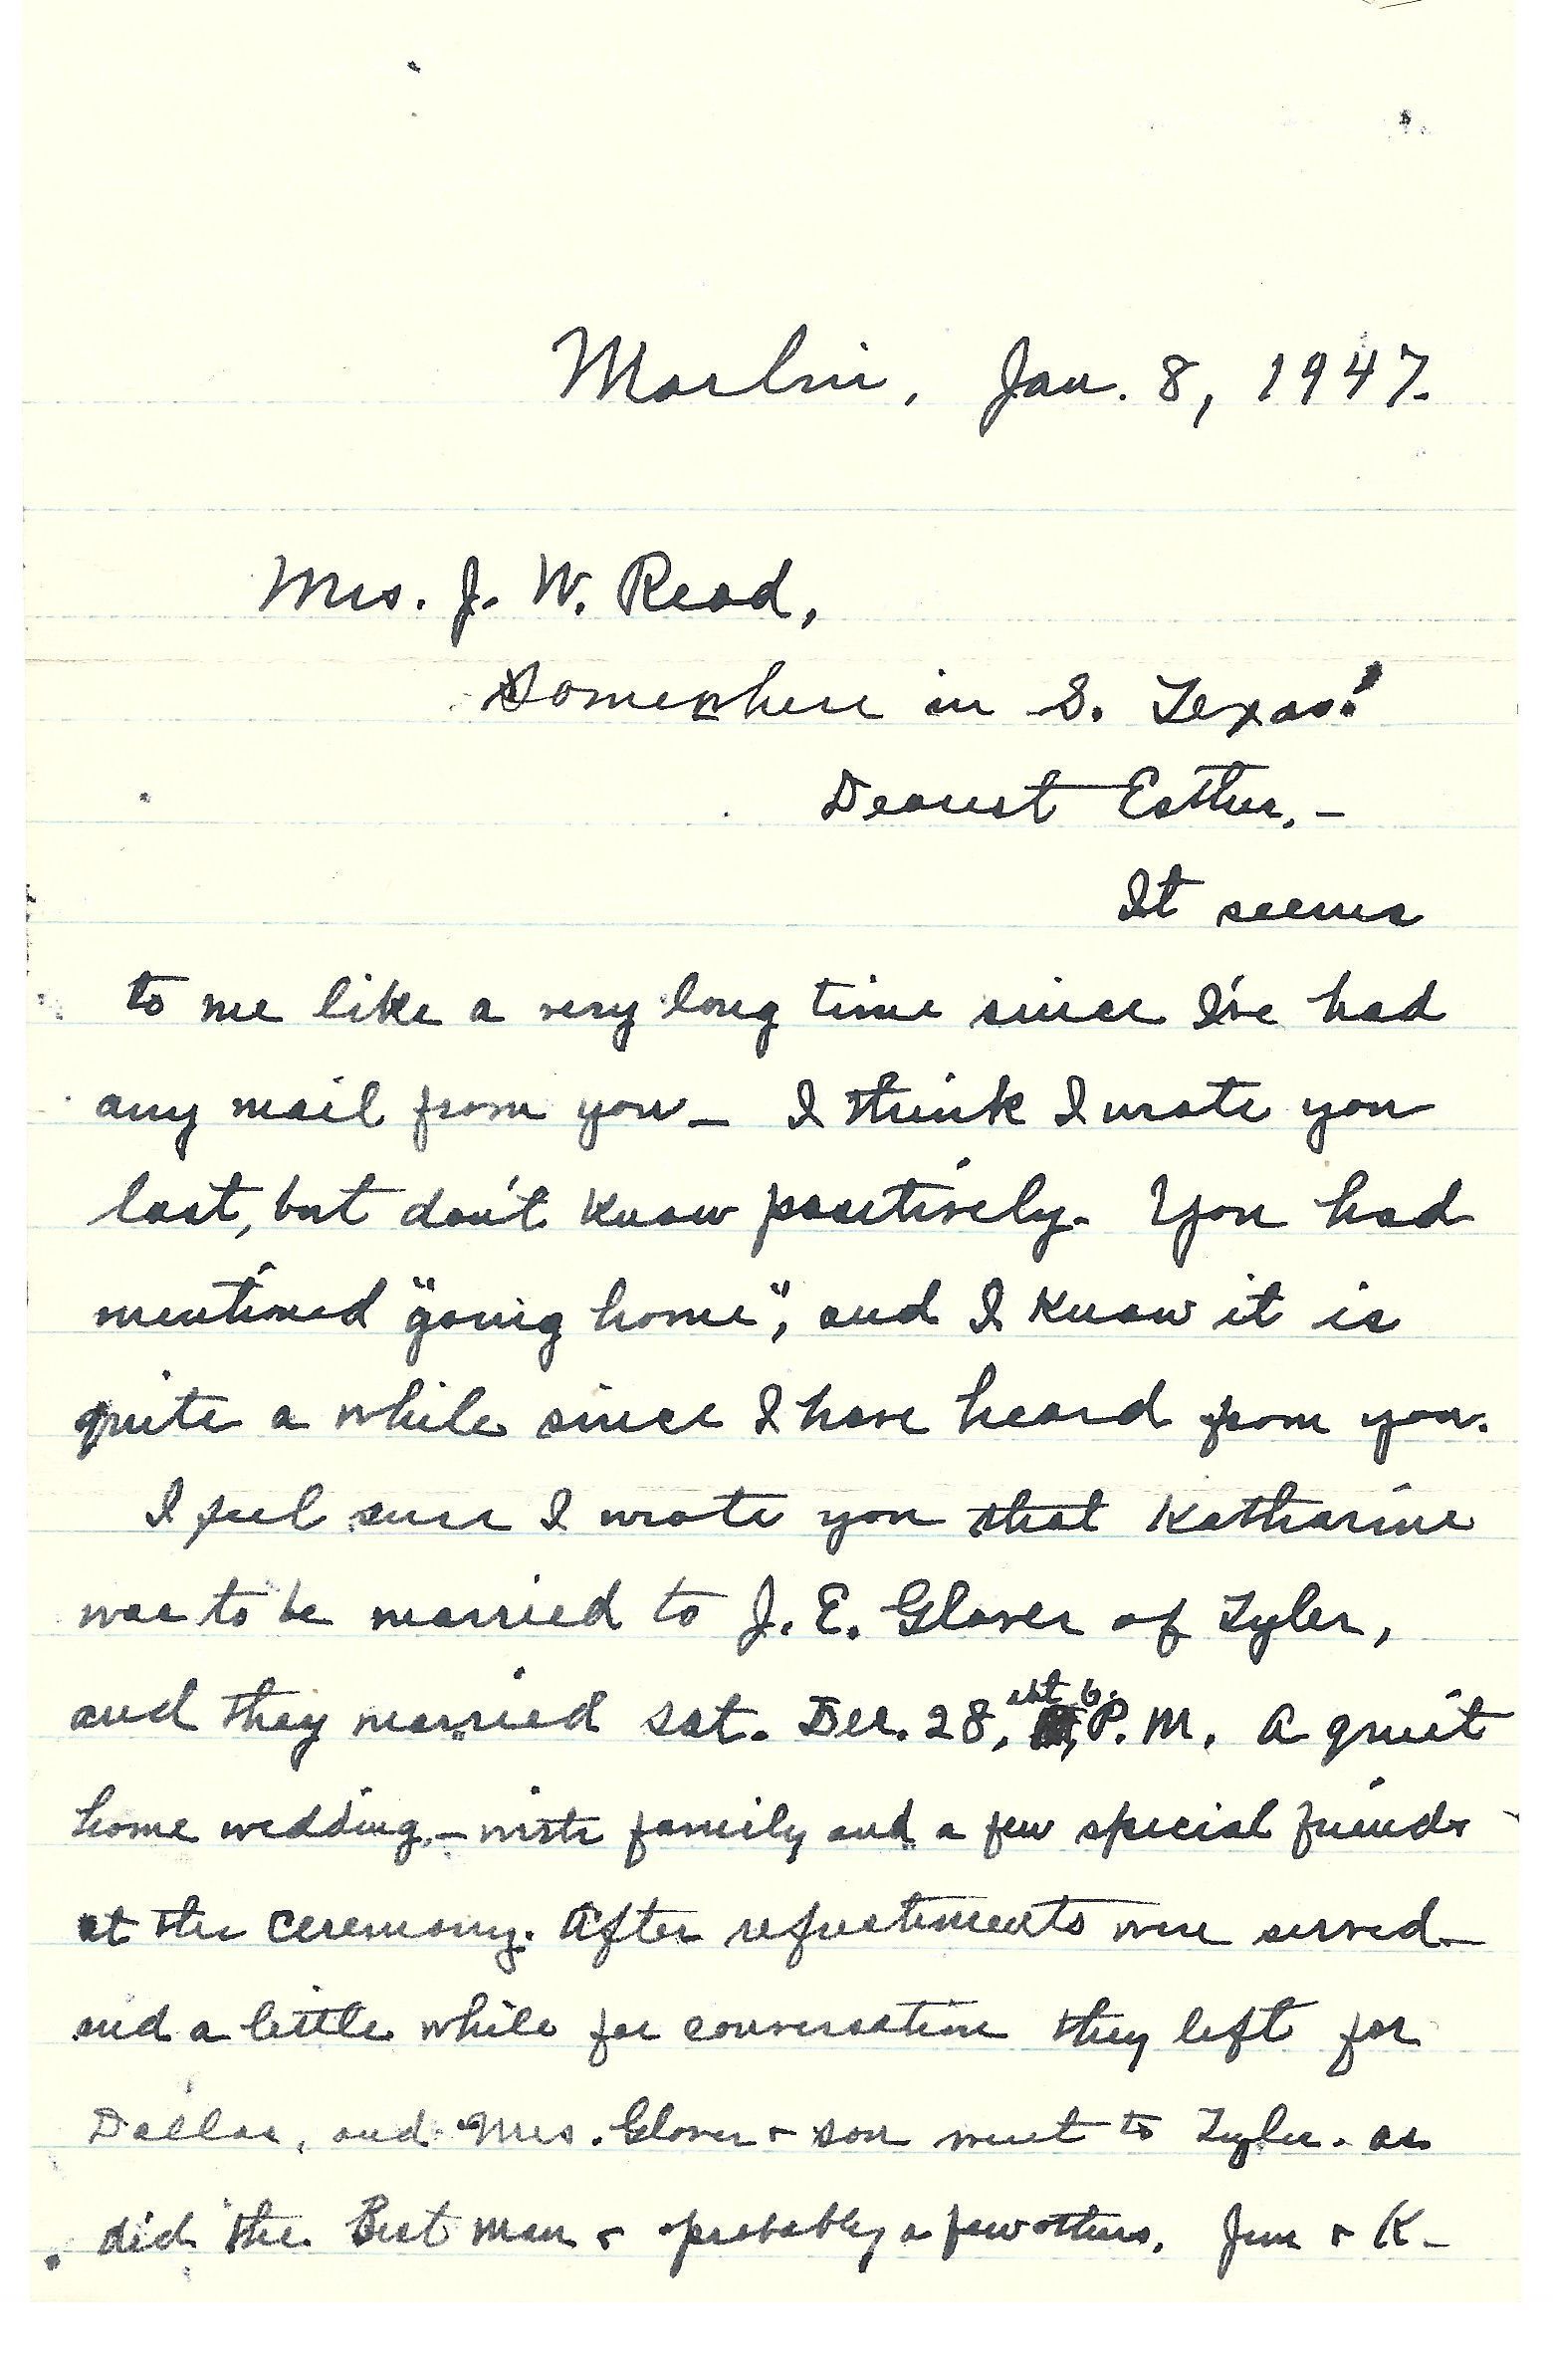 Marlin, Jan. 8, 1947.
Mrs. J. W. Read,
Somewhere in S. Texas!
Dearest Esther, –
It seems
to me like a very long time since I've had
any mail from you – I think I wrote you
last, but don't know positively. You had
mentioned "going home", and I know it is
quite a while since I have heard from you.
I feel sure I wrote you that Katharine
was to be married to J. E. Glover of Tyler,
and they married Sat. Dec. 28, at 6 P. M. A quiet
home wedding, – with family and a few special friends
at the ceremony. After refreshments were served –
and a little while for conversation they left for
Dallas, and Mrs. Glover & son went to Tyler. as
did the Best Man & probably a few others. Jim & K –